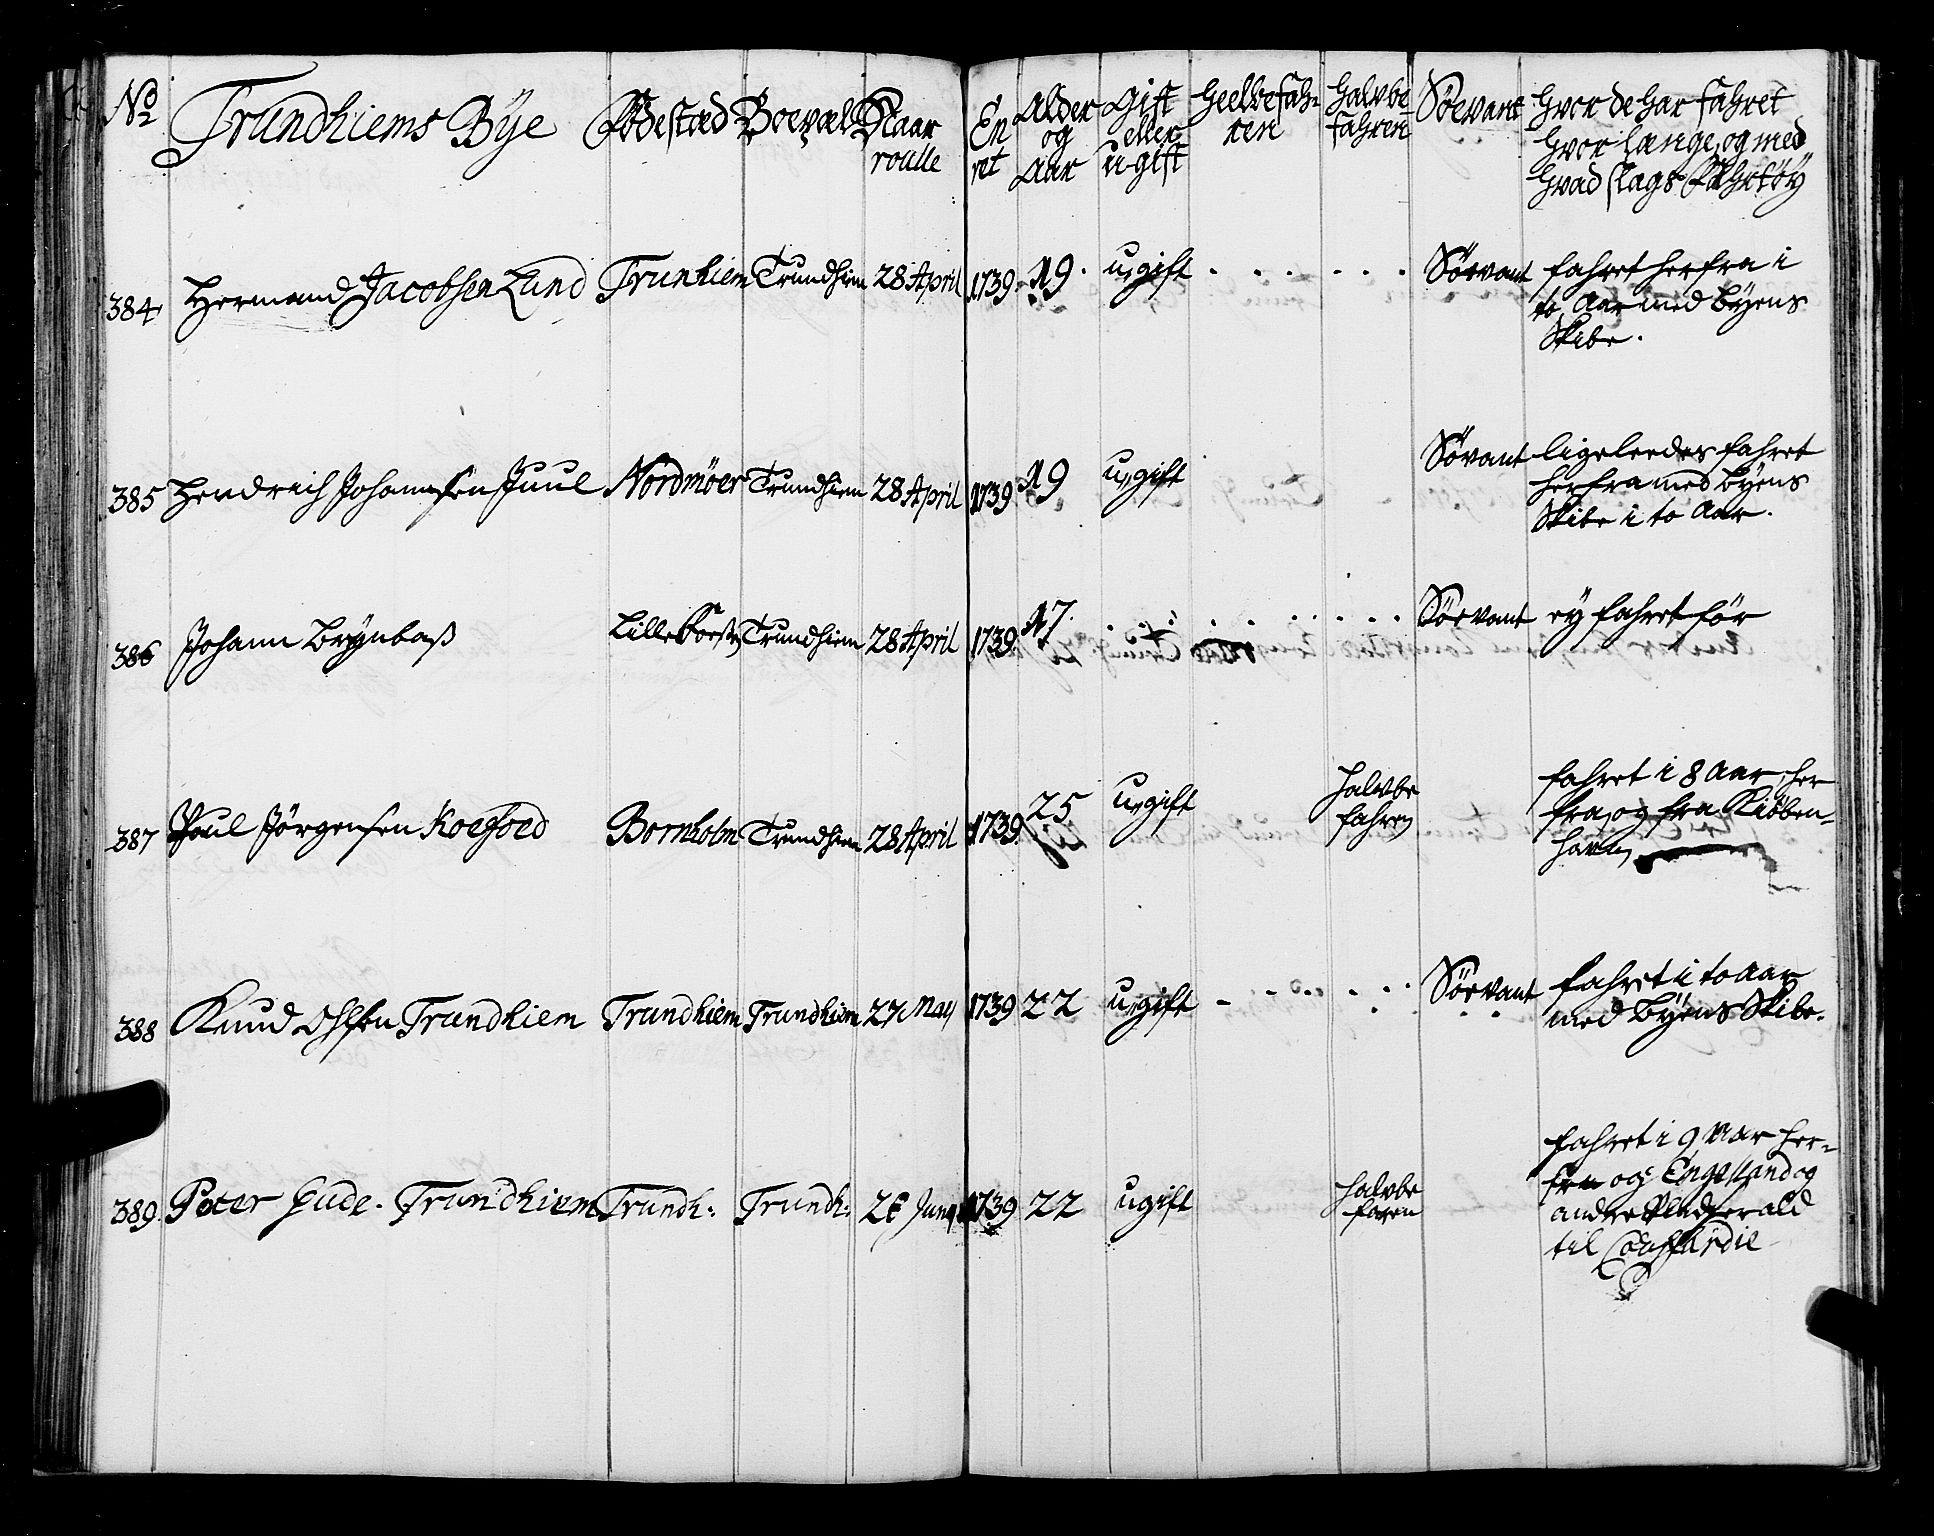 No Trundhiems Bÿe Födestæd Boepæl Naar Enroulleret Alder og Aar Gift eller u-gift Heelbefahren Halvbefahren Söevant hvor de har fahret
hvor længe, og med
hvad slags Fahrtöÿ
384 Hermand Jacobsen Lund Trunhiem Trundhiem 28 April 1739. 19. u-gift Söevant fahret herfra i
to Aar med Bÿens
Skibe.
385 Hendrich Johannsen Juul Nordmöer Trundhiem 28 April 1739 19 u-gift Sövant ligeleedes fahret
herfra med Bÿens
Skibe i to Aar.
386 Johann Brÿnbaß Lille Trundhiem 28 April 1739. 17. Söevant eÿ fahret för
387 Poul Jörgensen Koefoed Bornholm Trundhiem 28 April 1739. 25 u-gift halvbe
fahren
fahret i 8 Aar, her
fra, og fra Kiöben-
havn
388 Knud Olsen Trundhiem Trundhiem Trundhiem 27 Maÿ 1739 22 u-gift Söevant fahret i to Aar
med Bÿens Skibe.
389. Peter Gude. Trundhiem Trundh: Trundh: 26 Junÿ 1739 22 ugift halvbe
faren
fahret i 9 Aar her-
fra og Engelland og
andre
til Coufardie